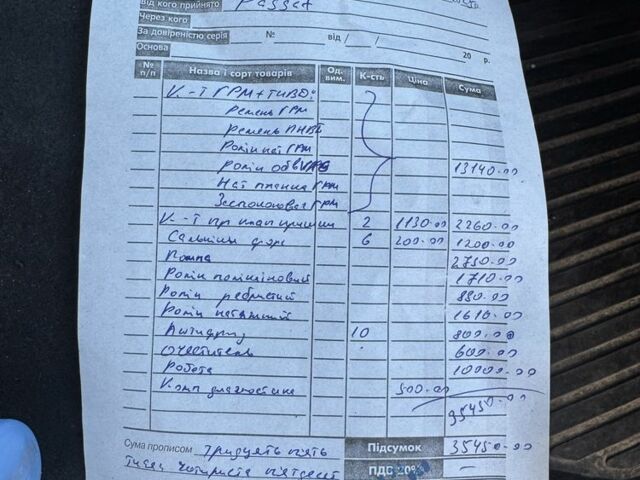 Від кого прийнято Passat
Через кого
За довіреністю серія № від / / 20 р.
Основа
№ п/п Назва і сорт товарів Од. вим. К-сть Ціна Сума
К-т ГРМ + ТНВД:
Ремень ГРМ
Ремень ПНВТ
Ролик нат ГРМ
Ролик обв ГРМ 13140-00
Нат планка ГРМ
Заспокоювач ГРМ
К-т пр клап кришки 2 1130-00 2260-00
Сальники форс 6 200-00 1200-00
Помпа 2750-00
Ролик поліклиновий 1710-00
Ролик ребристий 880-00
Ролик натяжний 1610-00
Антифриз 10 800-00
Очеститель 600-00
Робота 10000-00
Комп диагностика 500-00
35450-00
Сума прописом тридцять пять Підсумок 35450-00
тисяч чотириста пятдесят ПДВ 20% —